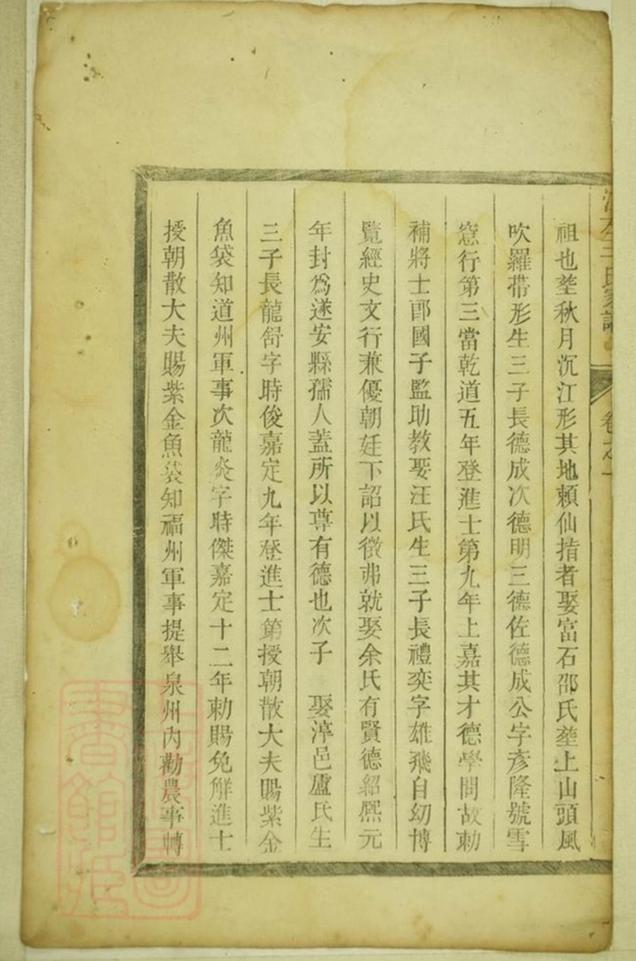 氏家譜
卷之一
祖也塟秋月沉江形其地頼仙指者娶富石邵氏塟上山頭風
吹羅帶形生三子長德成次德明三德佐德成公字彥隆號雪
窓行第三當乾道五年登進士第九年上嘉其才德學問故勅
補將士郎國子監助教娶汪氏生三子長禮奕字雄飛自幼博
覽經史文行兼優朝廷下詔以徵弗就娶余氏有賢德紹熈元
年封爲遂安縣孺人蓋所以尊有德也次子 娶淳邑盧氏生
三子長龍舒字時俊嘉定九年登進士第授朝散大夫賜紫金
魚袋知道州軍事次龍炎字時傑嘉定十二年勅賜免觧進士
授朝散大夫賜紫金魚袋知福州軍事提舉泉州內勸農事轉